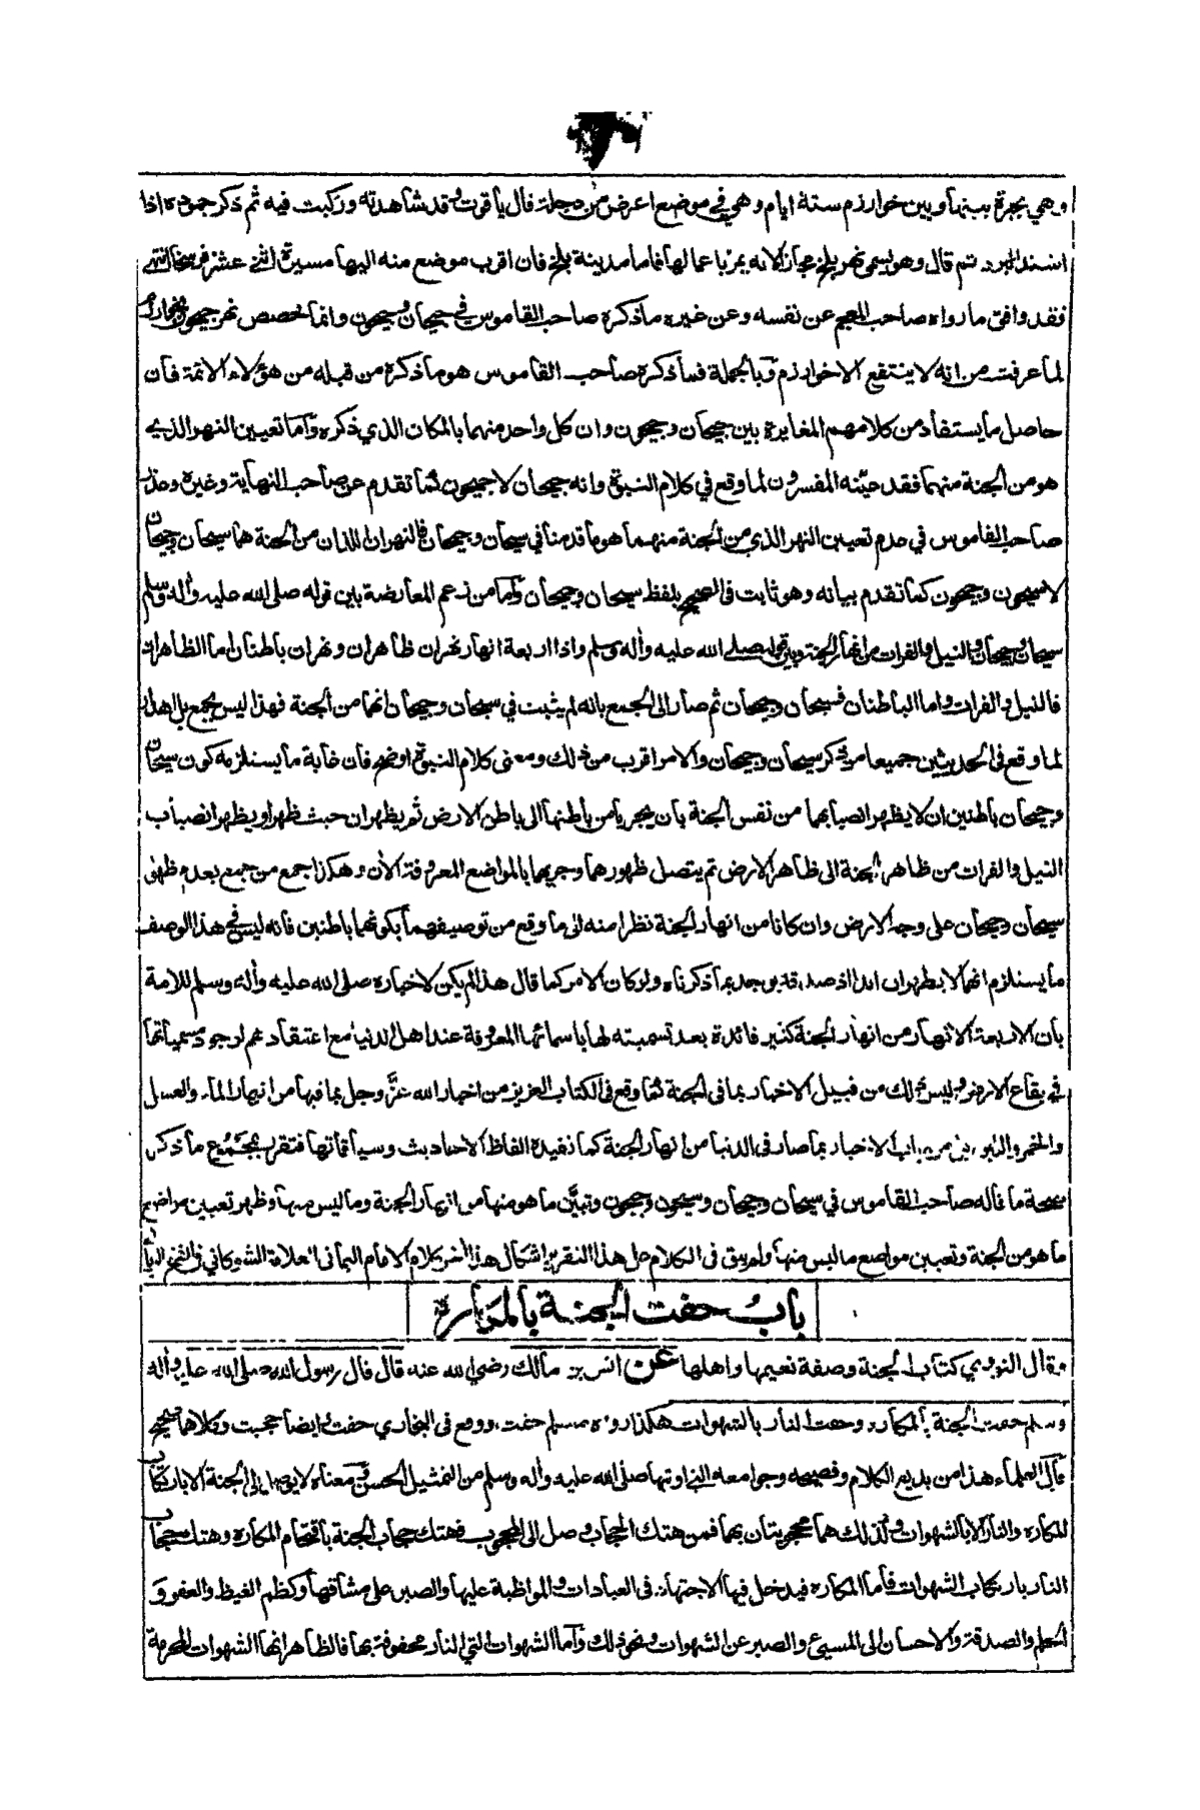 وهي بحيرة بينها وبين خوارزم ستة ايام وهي في موضع اعرض من دجلة قال ياقوت وقد شاهدته وركبت فيه ثم ذكر جموده اذا
اشتد البرد ثم قال وهو يسمى نهر بلخ مجازا لانه يمر باعمالها فاما مدينة بلخ فان اقرب موضع منه اليها مسيرة اثنى عشر فرسخا انتهى
فقد وافق ما رواه صاحب المعجم عن نفسه وعن غيره ما ذكره صاحب القاموس في جيحان وسيحون وانما خصص نهر جيحون بخوارزم
لما عرفت من انه لا ينتفع الاخوارزم وبالجملة فما ذكره صاحب القاموس هو ما ذكره من قبله من هؤلاء الائمة فان
حاصل ما يستفاد من كلامهم المغايرة بين جيحان وجيحون وان كل واحد منهما بالمكان الذي ذكره واما تعيين النهر الذي
هو من الجنة منهما فقد عينه المفسرون لما وقع في كلام النبوة وانه جيحان لا جيحون كما تقدم عن صاحب النهاية وغيره وعذر
صاحب القاموس في عدم تعيين النهر الذي من الجنة منهما هو ما قدمنا في سيحان وجيحان فالنهران اللذان من الجنة هما سيحان وجيحان
لا سيحون وجيحون كما تقدم بيانه وهو ثابت في الصحيح بلفظ سيحان وجيحان واما من زعم المعارضة بين قوله صلى الله عليه واله وسلم
سيحان وجيحان والنيل والفرات من انهار الجنة وبين قوله صلى الله عليه واله وسلم واذا اربعة انهار نهران ظاهران ونهران باطنان اما الظاهران
فالنيل والفرات واما الباطنان فسيحان وجيحان ثم صار الى الجمع بانه لم يثبت في سيحان وجيحان انهما من الجنة فهذا ليس بجمع بل اهدار
لما وقع في الحديثين جميعا من ذكر سيحان وجيحان والامر اقرب من ذلك ومعنى كلام النبوة اوضح فان غاية ما يستلزمه كون سيحان
وجيحان باطنين ان لا يظهر انصبابهما من نفس الجنة بان يجريا من باطنها الى باطن الارض ثم يظهران حيث ظهرا ويظهر انصباب
النيل والفرات من ظاهر الجنة الى ظاهر الارض ثم يتصل ظهورهما وجريهما بالمواضع المعروفة الان وهكذا جمع من جمع بعدم ظهور
سيحان وجيحان على وجه الارض وان كانا من انهار الجنة نظرا منه الى ما وقع من توصيفهما بكونهما باطنين فانه ليس في هذا الوصف
ما يستلزم انهما لا يظهران ابدا اذ صدقه بوجد بما ذكرناه ولو كان الامر كما قال هذا لم يكن لاخباره صلى الله عليه واله وسلم للامة
بان الاربعة الانهار من انهار الجنة كثير فائدة بعد تسميته لها باسمائها المعروفة عند اهل الدنيا مع اعتقادهم لوجود مسمياتها
في بقاع الارض وليس ذلك من قبيل الاخبار بما في الجنة كما وقع في الكتاب العزيز من اخبار الله عزَّ وجل بما فيها من انهار الماء والعسل
والخمر واللبن بل من باب الاخبار بما صار في الدنيا من انهار الجنة كما تفيده الفاظ الاحاديث وسياقاتها فتقرر بمجموع ما ذكر
صحة ما قاله صاحب القاموس في سيحان وجيحان وسيحون وجيحون وتبيَّن ما هو منها من انهار الجنة وما ليس منها وظهر تعيين مواضع
ما هو من الجنة وتعيين مواضع ما ليس منها ولم يبق في الكلام على هذا التقرير اشكال هذا آخر كلام الامام اليماني العلامة الشوكاني في الفتح الرباني
بابُ حفت الجنة بالمكاره
وقال النووي كتاب الجنة وصفة نعيمها واهلها عن انس بن مالك رضي الله عنه قال قال رسول الله صلى الله عليه واله
وسلم حفت الجنة بالمكاره وحفت النار بالشهوات هكذا رواه مسلم حفت ووقع في البخاري حفت ايضا حجبت وكلاهما صحيح
قال العلماء هذا من بديع الكلام وفصيحه وجوامعه التي اوتيها صلى الله عليه واله وسلم من التمثيل الحسن ومعناه لا يوصل الى الجنة الا بارتكاب
المكاره والنار الا بالشهوات وكذلك هما محجوبتان بهما فمن هتك الحجاب وصل الى المحجوب فهتك حجاب الجنة باقتحام المكاره وهتك حجاب
النار بارتكاب الشهوات فأما المكاره فيدخل فيها الاجتهاد في العبادات والمواظبة عليها والصبر على مشاقها وكظم الغيظ والعفو و
الحلم والصدقة والاحسان الى المسيئ والصبر عن الشهوات ونحو ذلك وأما الشهوات التي النار محفوفة بها فالظاهر انها الشهوات المحرمة